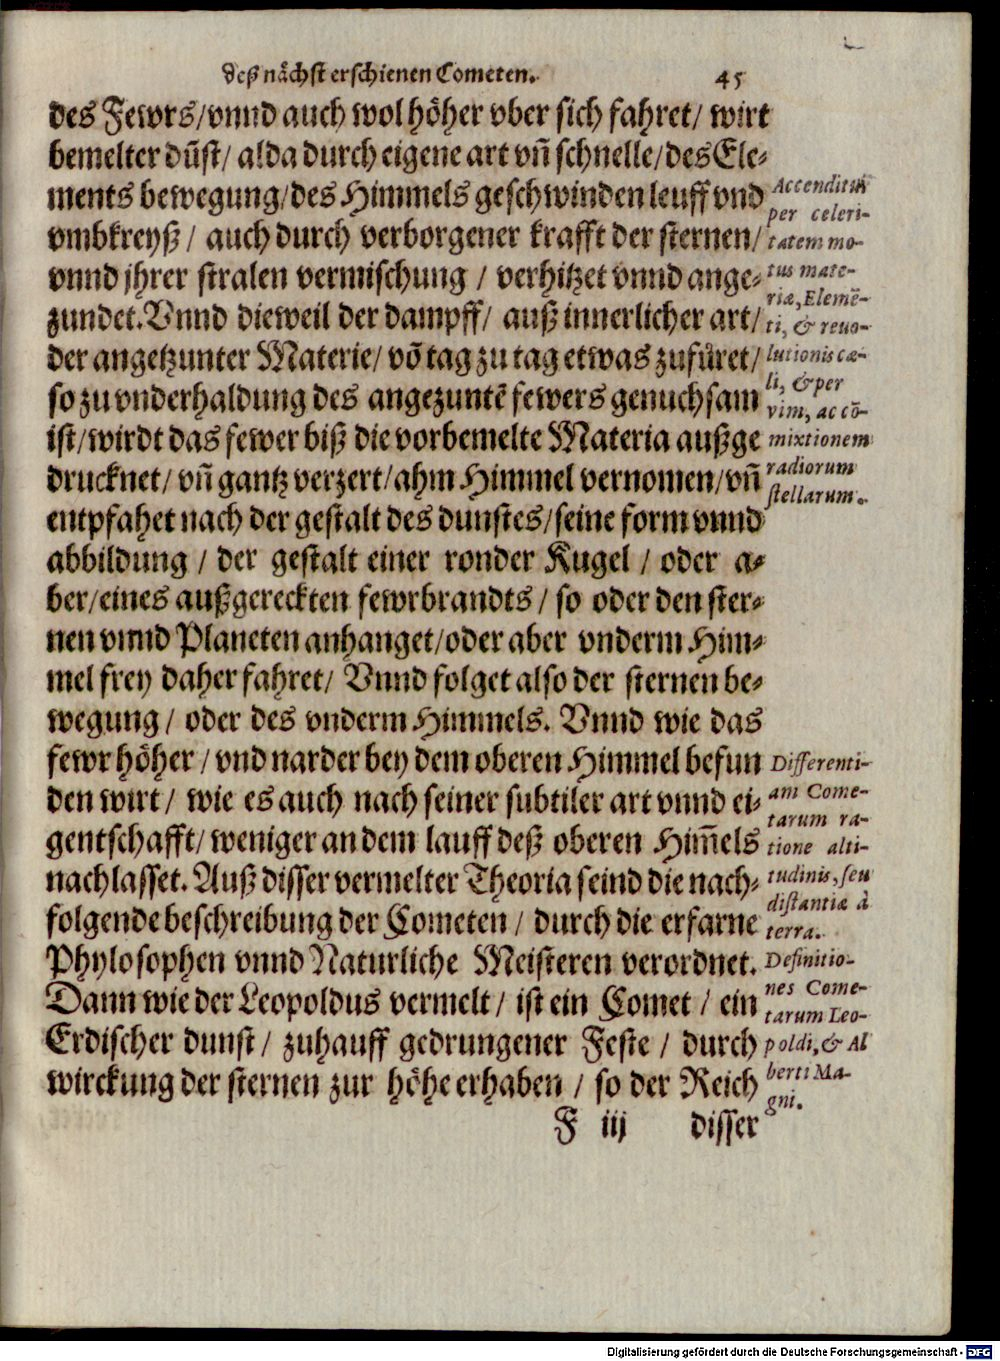 deß nächst erschienen Cometen. 45
des Fewrs/vnnd auch wol höher vber sich fahret/ wirt
bemelter dūst/ alda durch eigene art vñ schnelle/des Ele-
ments bewegung/des Himmels geschwinden leuff vnd
vmbkreyß / auch durch verborgener krafft der sternen/
vnnd jhrer stralen vermischung / verhitzet vnnd ange-
zundet. Vnnd dieweil der dampff/ auß innerlicher art/
der angetzunter Materie/ võ tag zu tag etwas zufůret/
so zu vnderhaldung des angezuntē fewers genuchsam
ist/wirdt das fewer biß die vorbemelte Materia außge
drucknet/ vñ gantz verzert/ahm Himmel vernomen/vñ
entpfahet nach der gestalt des dunstes/seine form vnnd
abbildung / der gestalt einer ronder Kugel / oder a-
ber/eines außgereckten fewrbrandts / so oder den ster-
nen vnnd Planeten anhanget/oder aber vnderm Him-
mel frey daher fahret/ Vnnd folget also der sternen be-
wegung / oder des vnderm Himmels. Vnnd wie das
fewr höher / vnd narder bey dem oberen Himmel befun
den wirt / wie es auch nach seiner subtiler art vnnd ei-
gentschafft/ weniger an dem lauff deß oberen Him̄els
nachlasset. Auß disser vermelter Theoria seind die nach-
folgende beschreibung der Cometen / durch die erfarne
Phylosophen vnnd Naturliche Meisteren verordnet.
Dann wie der Leopoldus vermelt / ist ein Comet / ein
Erdischer dunst / zuhauff gedrungener Feste / durch
wirckung der sternen zur höhe erhaben / so der Reich
F iij disser
Accenditur
per celeri-
tatem mo-
tus mate-
riæ, Elemē-
ti, & reuo-
lutionis cæ-
li, & per
vim, ac cō-
mixtionem
radiorum
stellarum.
Differenti-
am Come-
tarum ra-
tione alti-
tudinis, seu
distantiæ à
terra.
Definitio-
nes Come-
tarum Leo-
poldi, & Al
berti Ma-
gni.
Digitalisierung gefördert durch die Deutsche Forschungsgemeinschaft - DFG